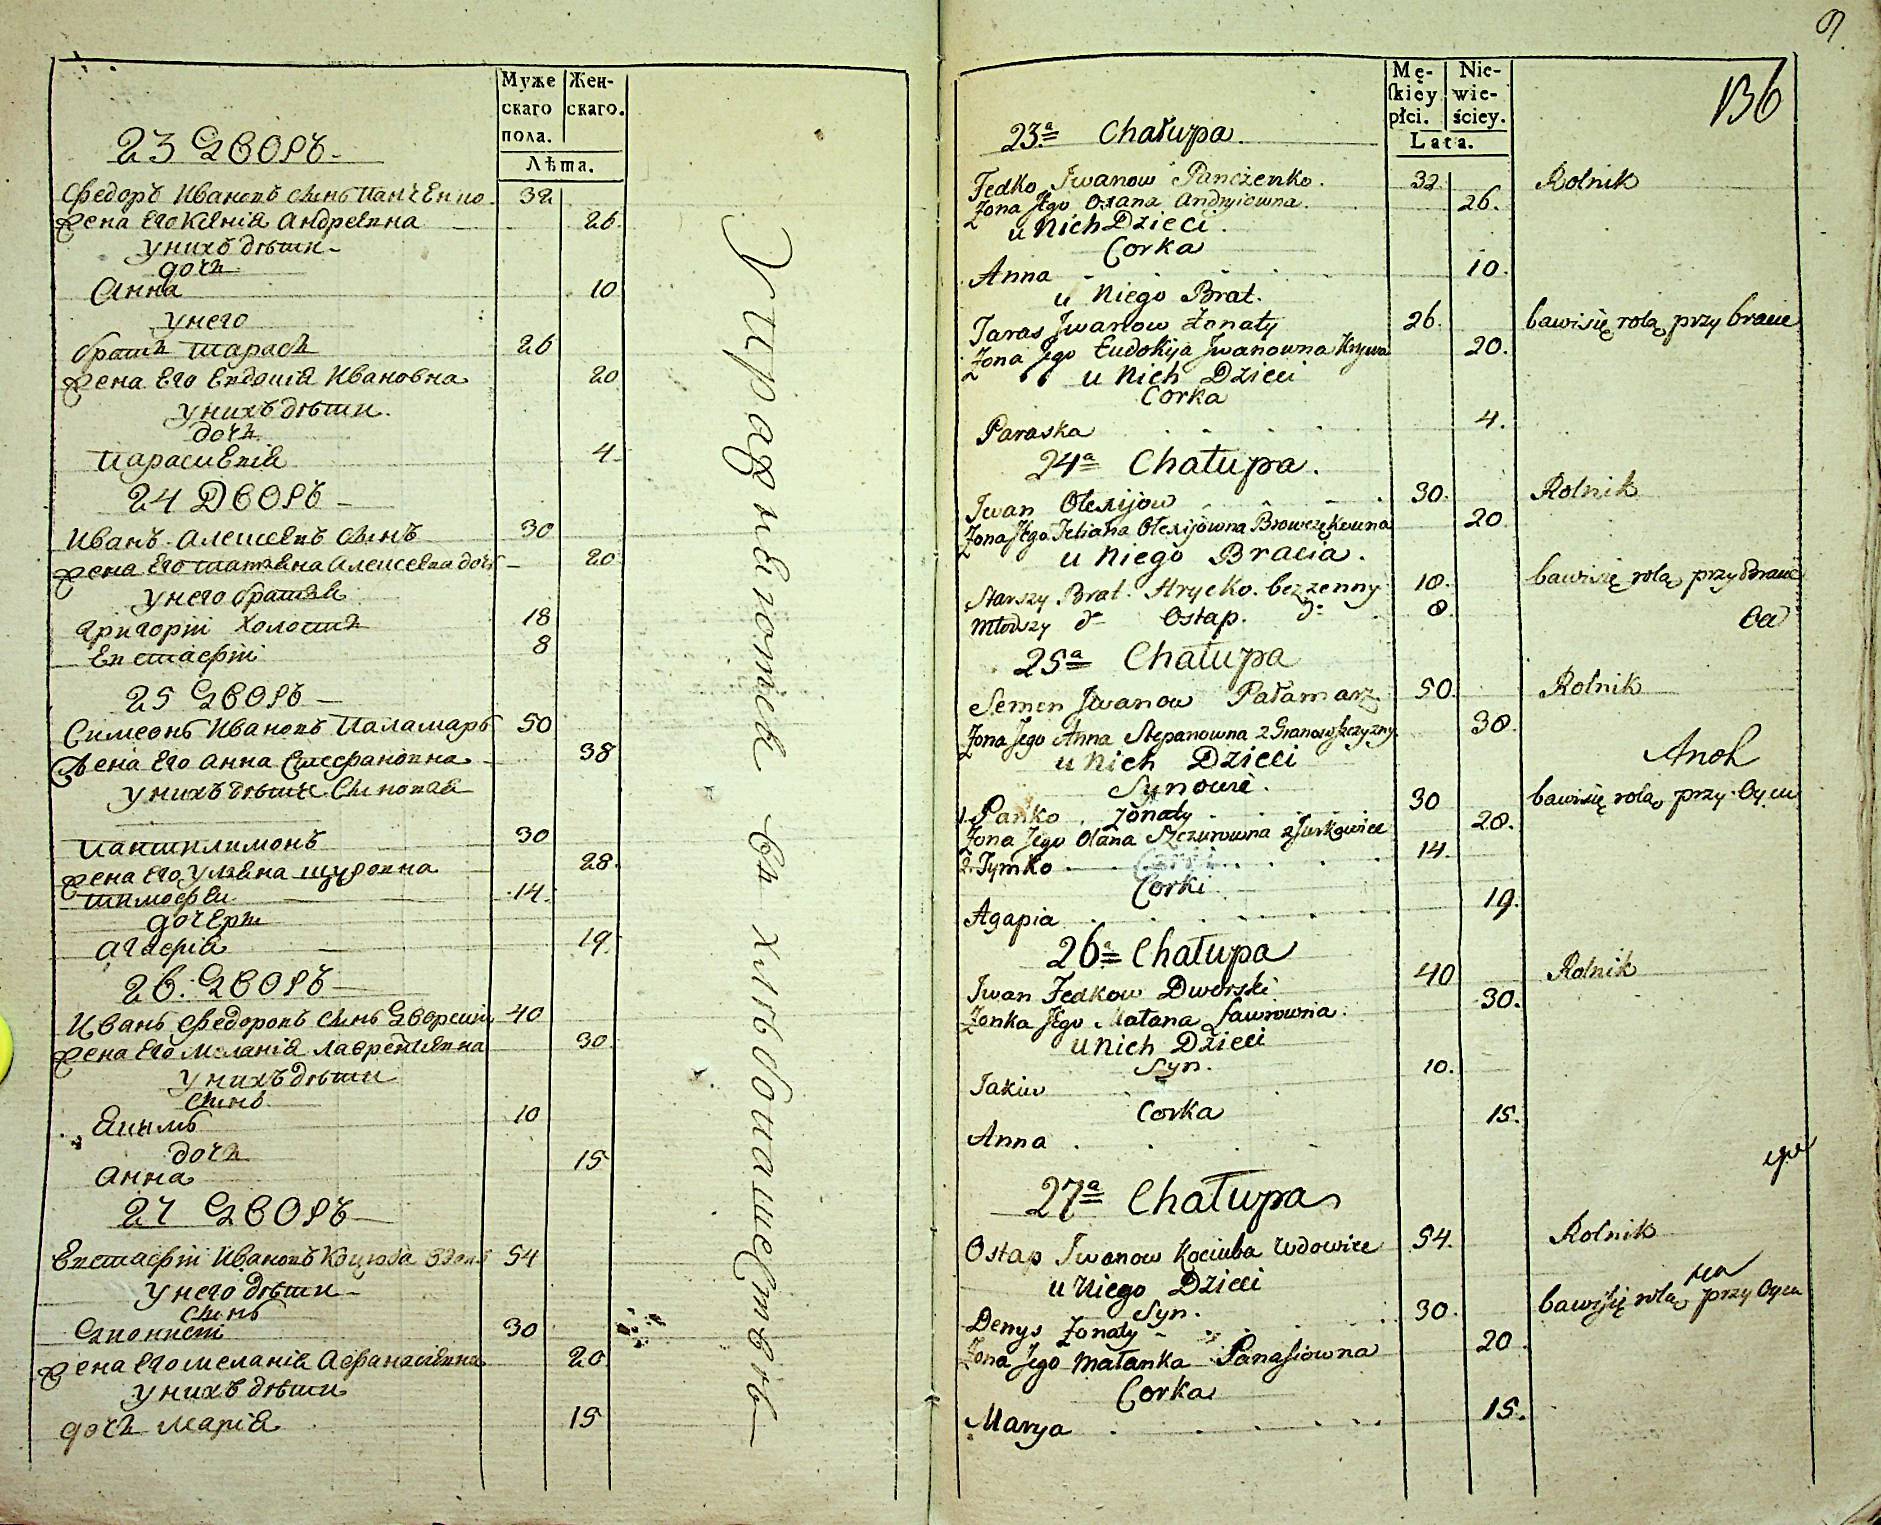 Муже Жен-
скаго скаго.
пола.
Лѣта.
23 Дворъ
Федоръ Ивановъ сынъ Панченко 32
Жена Его Ксенія Андреевна 26.
у нихъ дѣти
дочь
Анна 10
у него
братъ Тарасъ 26
Жена Его Евдокія Ивановна 20
у нихъ дѣти.
дочь
Парасковія 4
24 Дворъ
Иванъ Алексеевъ сынъ 30
Жена Его Татіяна Алексеева дочь 20
у него братья
Григорій холостъ 18
Евстафій 8
25 Дворъ
Симеонъ Ивановъ Паламаръ 50
Жена Его Анна Стефановна 38
у нихъ дѣти Сыновья
Пантилимонъ 30
Жена Его Уляна Щуровна 28.
Тимофей 14.
дочери
Агафія 19.
26. Дворъ
Иванъ Федоровъ сынъ Дворскій 40
Жена Его Меланія Лаврентіевна 30
у нихъ дѣти
сынъ
Якимъ 10
дочь
Анна 15
27 Дворъ
Евстафій Ивановъ Коцюба вдовъ 54
у него дѣти
сынъ
Діонисій 30
Жена Его Меланія Афанасіевна 20
у нихъ дѣти
дочь Марія 15
Упражняются въ хлѣбопашествѣ
9.
136
Mę- Nie-
skiey wie-
płci. ściey.
Lata.
23.a Chałupa.
Fedko Iwanow Panczenko. 32 Rolnik
Zona Jego Oxana Andrijowna. 26.
u Nich Dzieci.
Corka
Anna 10.
u Niego Brat.
Taras Iwanow Zonaty 26. bawi się rolą przy bracie
Zona Jego Eudokija Iwanowna Krywa 20.
u Nich Dzieci
Corka
Paraska 4.
24a Chałupa.
Iwan Olexijow 30. Rolnik
Zona Jego Teliana Olexijowna Browczękowna 20
u Niego Bracia.
Starszy Brat. Hrycko. bezzenny 18. bawi się rolą przy Bracie
Młodszy do Ostap. do 8.
25a Chałupa
Semen Iwanow Pałamarz 50. Rolnik
Zona Jego Anna Stepanowna z Granowszczyzny 38.
u Nich Dzieci
Synowie.
1. Pańko. Zonaty 30 bawi się rolą przy Oycu
Zona Jego Olana Szczurowna z Jurkowiec 28.
2. Tymko 14.
Corki
Agapia 19.
26a Chałupa
Iwan Fedkow Dworski 40 Rolnik
Zonka Jego Małana Ławrowna. 30.
u Nich Dzieci
Syn. 10.
Jakiw
Corka 15.
Anna
27a Chałupa
Ostap Iwanow Kociuba Wdowiec 54. Rolnik
u Niego Dzieci
Syn. 30. bawi się rolą przy Oycu
Denys Zonaty
Zona Jego Małanka Panasiowna 20.
Corka
Marya 15.